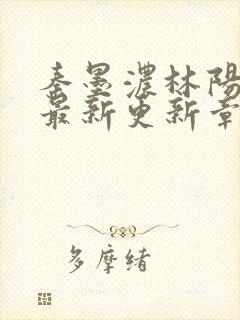 秦墨濃林陽
最新更新章
多摩緒